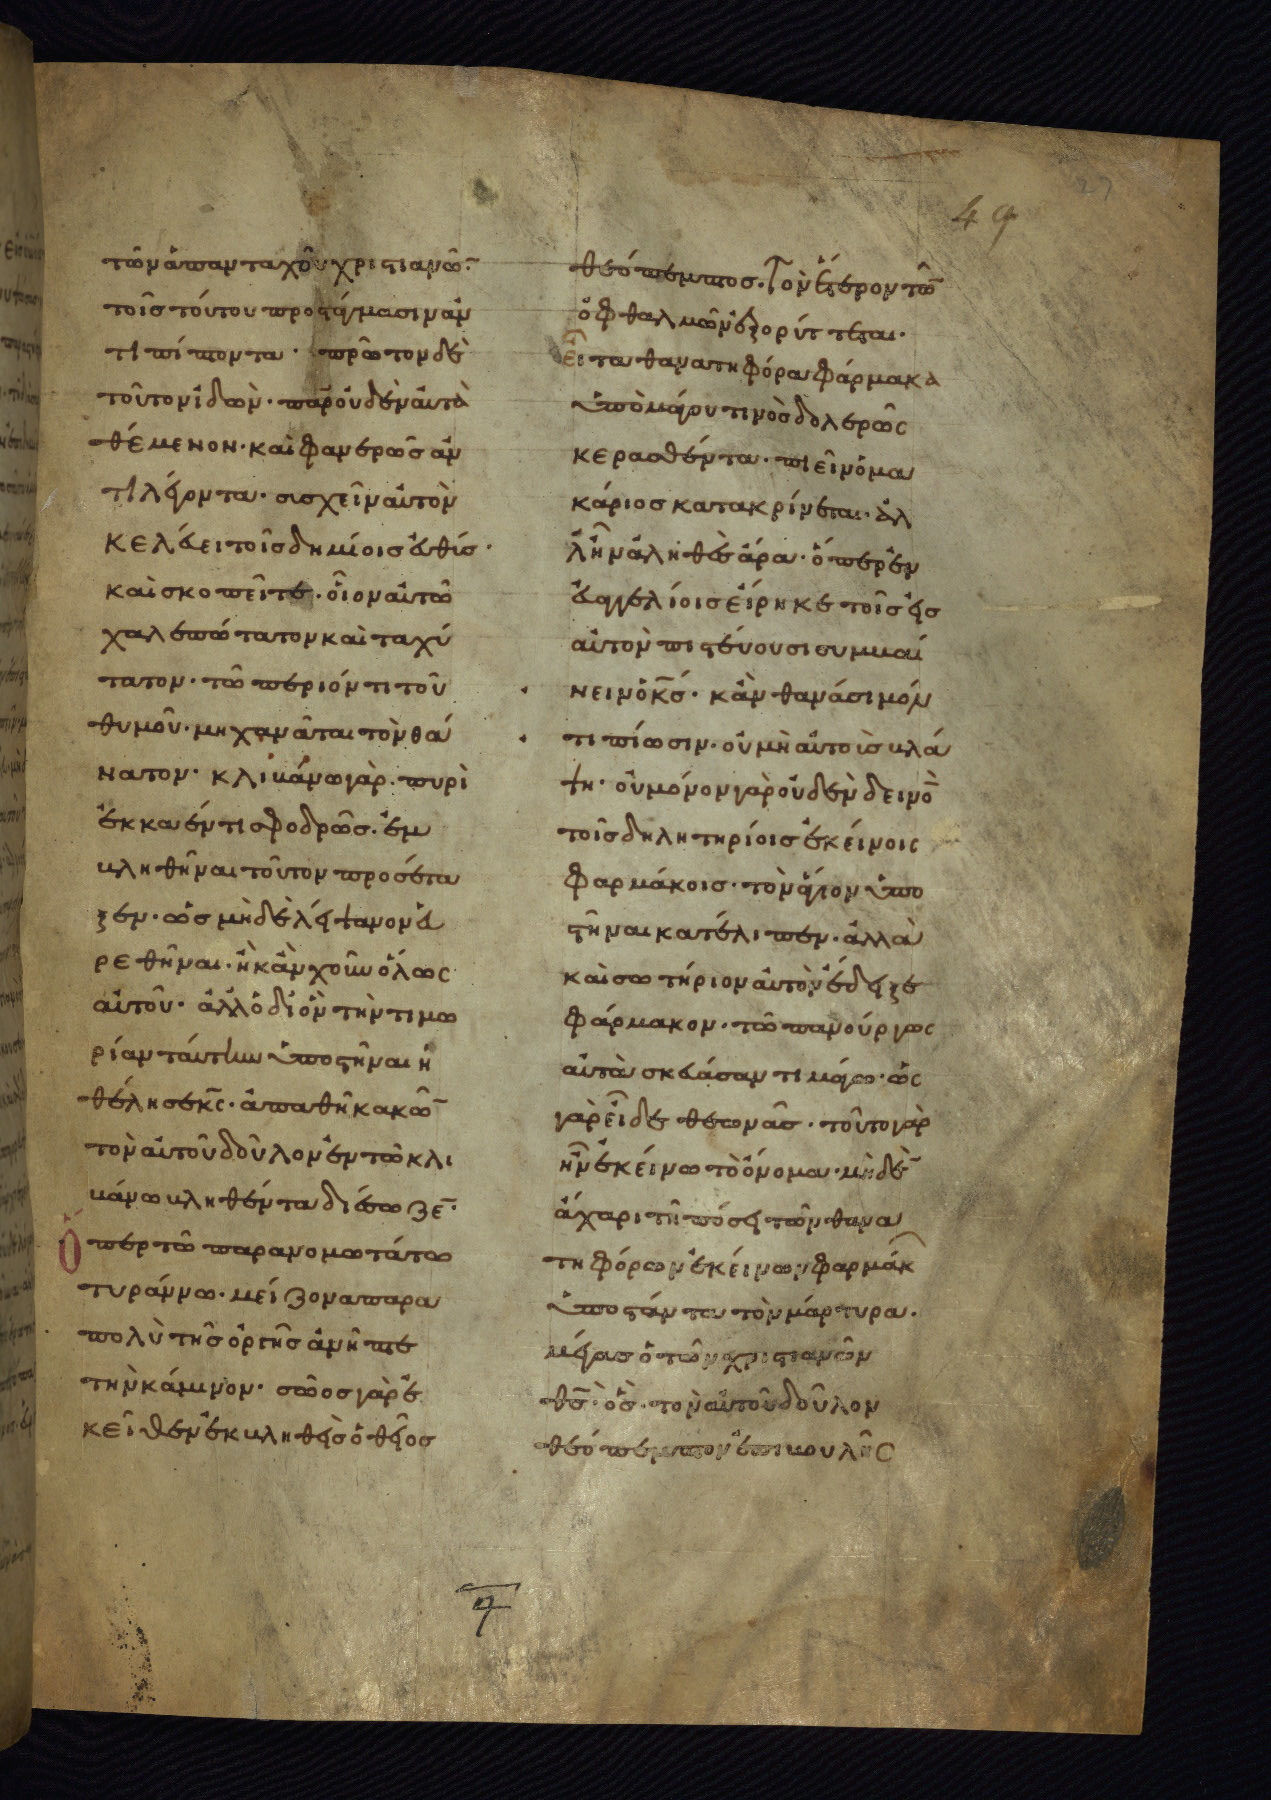 49
27
τῶν ἁπανταχοῦ χριστιανῶ̅·
τοῖς τούτου προστάγμασιν ἀν
τιπίπτοντα· πρῶτον δὲ
τοῦτον ἰδὼν· παρ' οὐδὲν αὐτὰ
θέμενον· καὶ φανερῶς ἀν
τιλέγοντα· συσχεῖν αὐτὸν
κελεύει τοῖς δημίοις εὐθύς·
καὶ σκοπεῖτε· οἷον αὐτῶ
χαλεπώτατον καὶ ταχύ
τατον· τῶ περιόντι τοῦ
θυμοῦ· μηχανᾶται τὸν θά
νατον· κλιβάνω γὰρ· πυρὶ
ἐκκαέντι σφοδρῶς· ἐμ
βληθῆναι τοῦτον προσέτα
ξεν· ὡς μηδὲ λείψανον εὑ
ρεθῆναι· ἢ κἂν χοῦν ὅλως
αὐτοῦ· ἀλλ' ὁ δι' ὃν τὴν τιμω
ρίαν ταύτην ὑποστῆναι ἠ
θέλησε κ̅ς̅· ἀπαθῆ κακῶ̅
τὸν αὐτοῦ δοῦλον ἐν τῶ κλι
βάνω βληθέντα διέσωζε̅·
Ὅπερ τῶ παρανομωτάτω
τυράννω· μείζονα παρα
πολὺ τῆς ὀργῆς ἀνῆπτε
τὴν κάμινον· σῶος γὰρ ἐ
κεῖθεν ἐκβληθεὶς ὁ θεῖος
θεόπεμπτος· τὸν ἕτερον τῶ̅
ὀφθαλμῶν ἐξορύττεται·
εἶτα θανατηφόρα φάρμακα
ὑπὸ μάγου τινὸς δολερῶς
κερασθέντα· πιεῖν ὁ μα
κάριος κατακρίνεται· ἀλ
λ' ἦν ἀληθὲς ἄρα· ὅπερ ἐν
εὐαγγελίοις εἴρηκε τοῖς εἰς
αὐτὸν πιστεύουσι συμβαί
νειν ὁ κ̅ς̅· κἂν θανάσιμόν
τι πίωσιν· οὐ μὴ αὐτοὺς βλά
ψη· οὐ μόνον γὰρ οὐδὲν δεινὸ̅
τοῖς δηλητηρίοις ἐκείνοις
φαρμάκοις· τὸν ἅγιον ὑπο
στῆναι κατέλιπεν· ἀλλὰ
καὶ σωτήριον αὐτὸν ἔδειξε
φάρμακον· τῶ πανούργως
αὐτὰ σκευάσαντι μάγω· ὡς
γὰρ εἶδε θεωνᾶς· τοῦτο γὰρ
ἦν ἐκείνω τὸ ὄνομα· μηδὲ̅
ἄχαρι τῆ πόσει τῶν θανα
τηφόρων ἐκείνων φαρμάκ
ὑποστάντα τὸν μάρτυρα·
μέγας ὁ τῶν χριστιανῶν
θ̅ς̅· ὃς· τὸν αὐτοῦ δοῦλον
θεόπεμπτον ἐπιβουλῆς
ζ̅